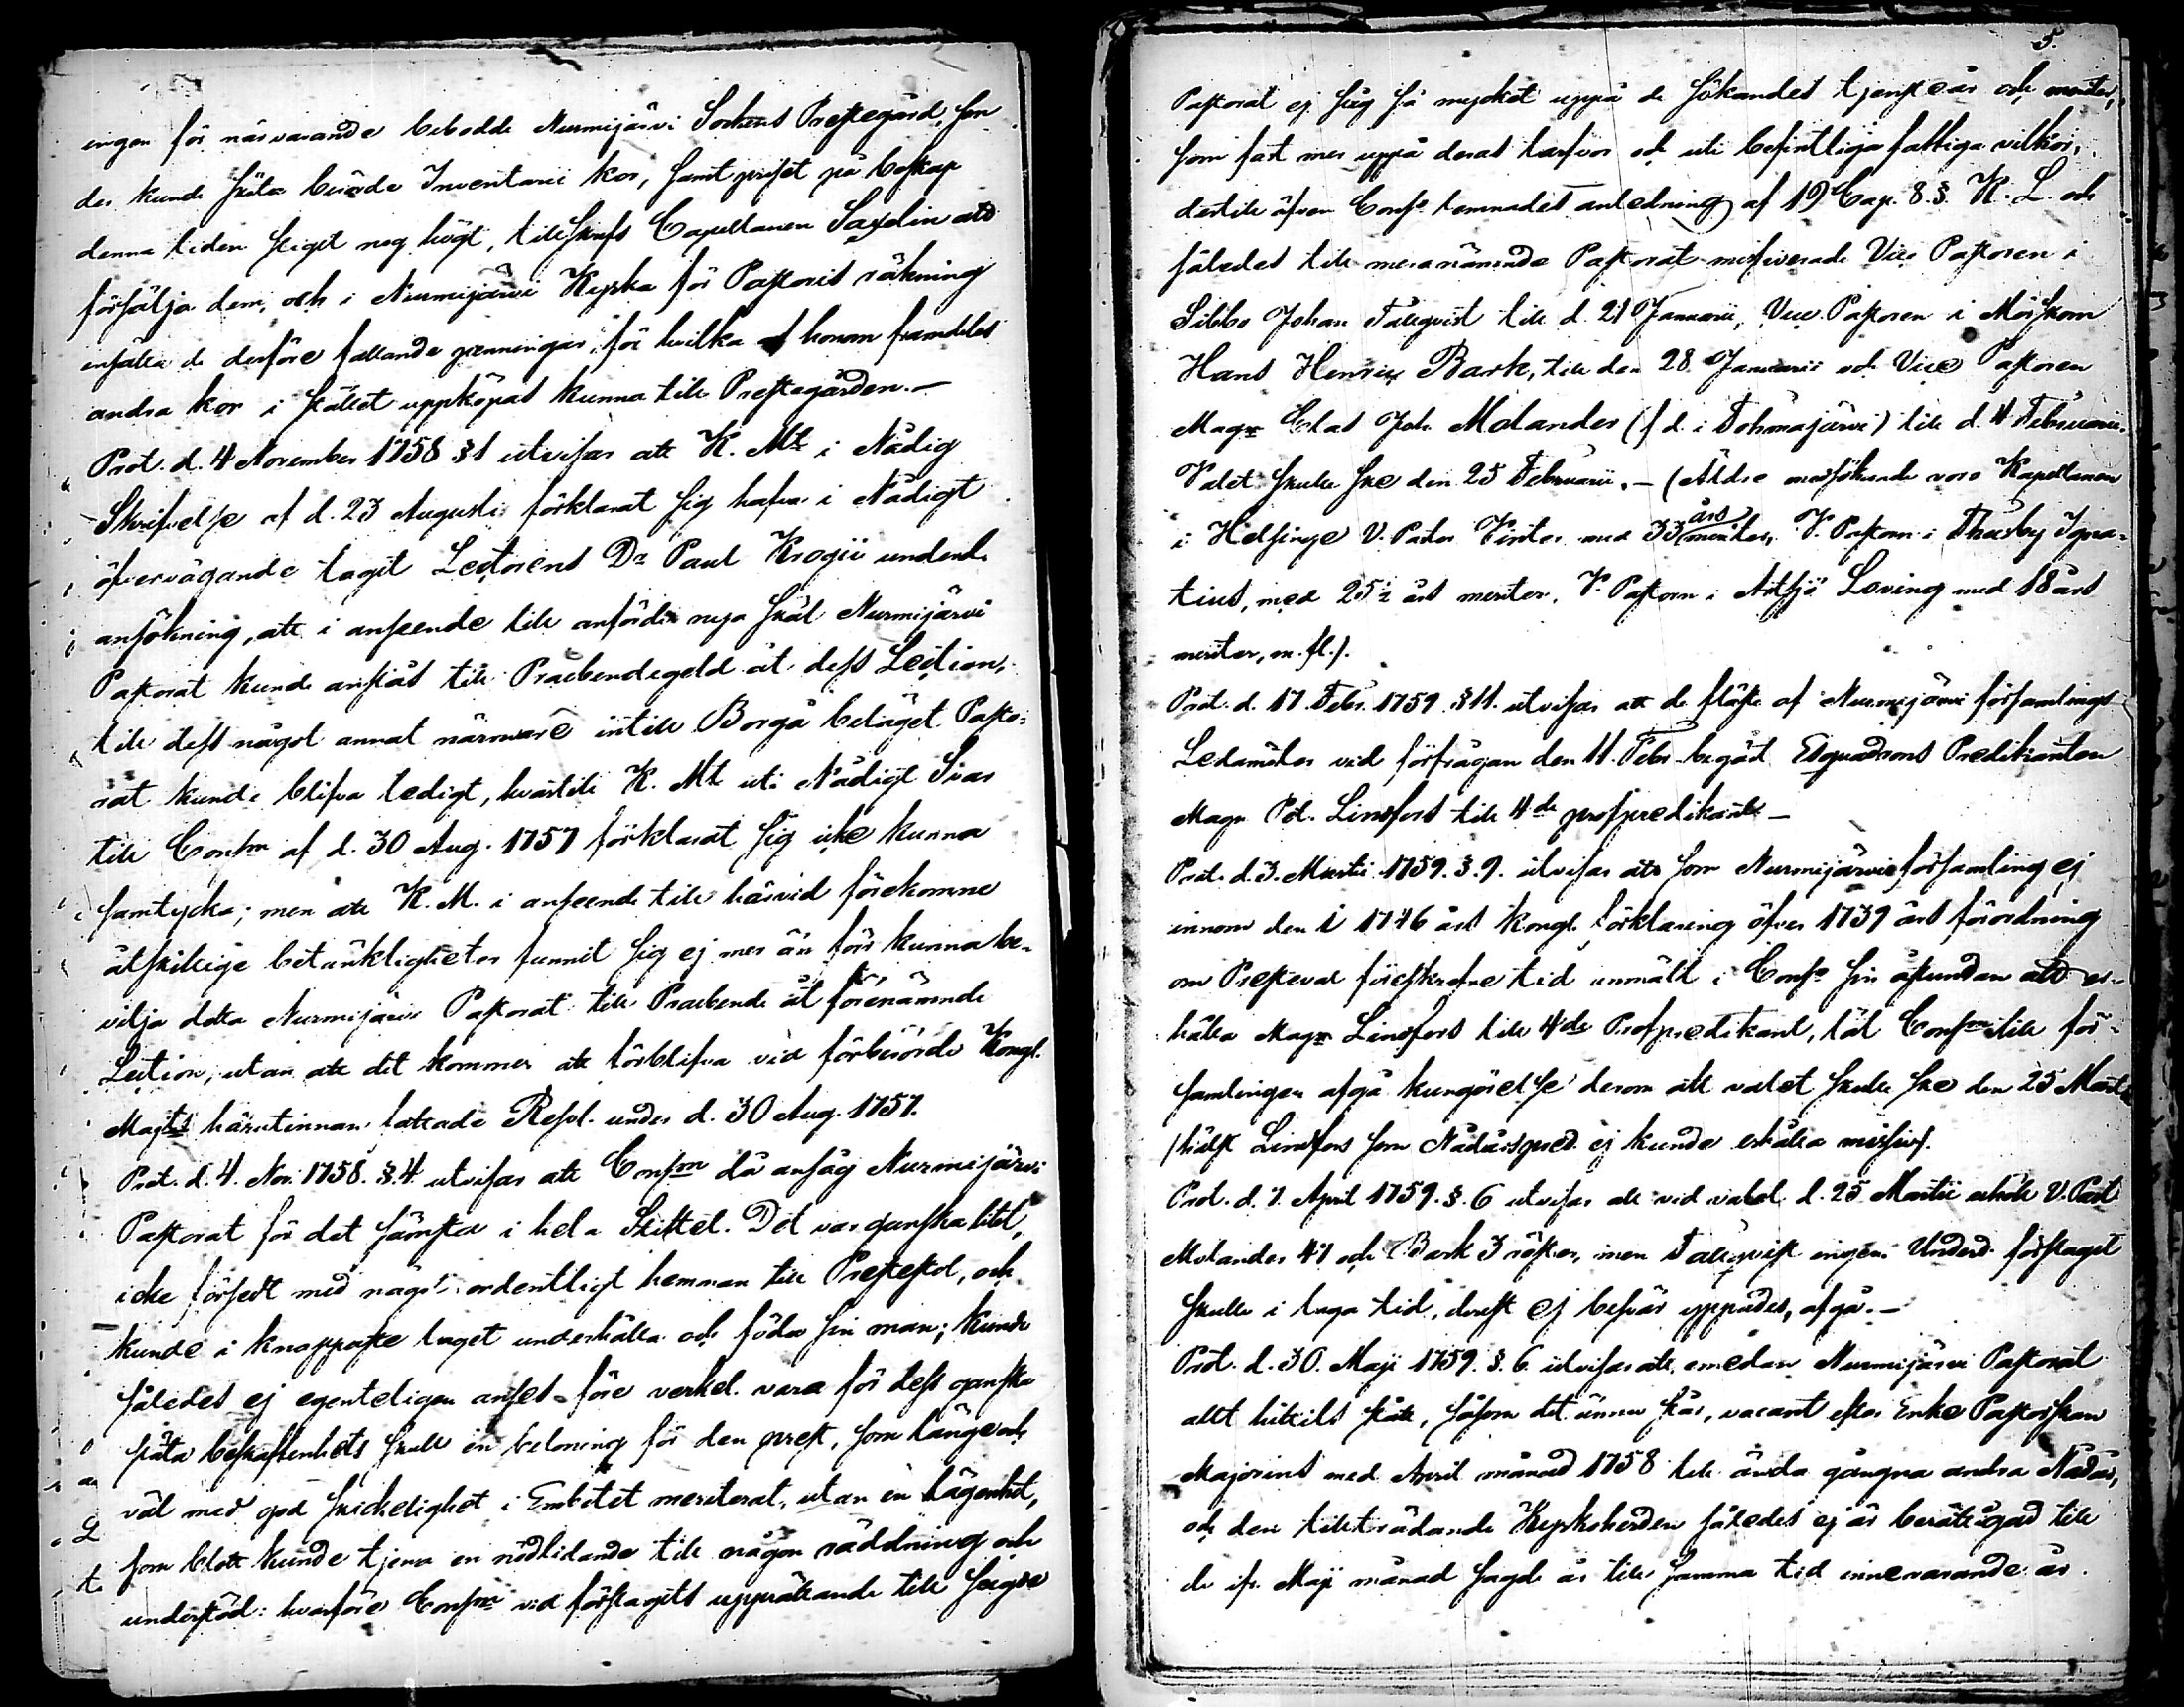 ingen för närvarande bebodde Nurmijärvi Sockens Prestegård, som
der kunde sköta berörde Inventarii kor, samt priset på boskap
denna tiden stiget nog högt, tillskrefs Capellanen Saxelin att
försälja dem, och i Nurmijärvi Kyrka för Pastoris räkning
insätta de derföre fallande penningar, för hvilka af honom framdeles
andra kor i stället uppköpas kunna till Prestegården.—
Prot. d. 4 November 1758 §1 utvisar att K. Mt i Nådig
Skrifvelse af d. 23 Augusti förklarat sig hafva i Nådigt
öfvervägande tagit Lectorens Dr Paul Krogii underd.
ansökning, att i anseende till anförde nya skäl Nurmijärvi
Pastorat kunde anslås till Praebendegeld åt dess Lection,
till dess något annat närmare intill Borgå beläget Pasto-
rat kunde blifva ledigt, hvartill K. Mt uti Nådigt Svar
till Consm af d. 30 Aug. 1757 förklarat sig icke kunna
samtycka; men att K. M. i anseende till härvid förekomne
åtskillige betänkligheter funnit sig ej mer än förr kunna be-
vilja detta Nurmijärvi Pastorat till Praebende åt förenämnde
Lection, utan att det kommer att förblifva vid förberörde Kongl.
Majts härutinnan lemnade Resol. under d. 30 Aug. 1757.
Prot. d. 4. Nov. 1758. §.4. utvisar att Consm då ansåg Nurmijärvi
Pastorat för det sämsta i hela Stiftet. Det var ganska litet,
icke försedt med något ordentligt hemman till Prestebol, och
kunde i knappaste laget underhålla och föda sin man; kunde
således ej egenteligen anses före verkel. vara för dess ganska
släta beskaffenhets skull en beloning för den prest, som länge och
väl med god skickelighet i Embetet meriterat, utan en lägenhet,
som blott kunde tjena en nödlidande till någon räddning och
understöd: hvarföre Consm vid förslagets upprättande till sagde
5.
Pastorat ej såg så mycket uppå de sökandes tjensteår och meriter,
som fast mer uppå deras tarfvor och uti befintliga fattiga vilkor,
dertill äfven Conso lemnades anledning af 19 Cap. 8.§. K. L. och
således till meranämnde Pastorat missiverade Vice Pastoren i
Sibbo Johan Tallqvist till d. 21 Januarii, Vice Pastoren i Mörskom
Hans Henrik Bark, till den 28. Januarii och Vice Pastoren
Magr Clas Joh. Molander (f d. i Tohmajärvi) till d. 4 Februarii.
Valet skulle ske den 25 Februarii.— (Äldre medsökande voro Kapellanen
i Helsinge V. Pastor Virtes med 33 års meriter, V. Pastorn i Thusby Igna-
tius, med 25½ års meriter, V. Pastorn i Artsjö Loving med 18 års
meriter, m. fl.).
Prot. d. 17. Febr. 1759. §11. utvisar att de fläste af Nurmijärvi församlings
Ledamöter vid förfrågan den 11. Febr. begärt Esquadrons Predikanten
Magr Pet. Linsfors till 4de profpredikant.—
Prot. d. 3. Martii 1759. §.9. utvisar att som Nurmijärvi församling ej
innom den i 1746 års Kongl. förklaring öfver 1739 års förordning
om Presteval föreskrefne tid anmält i Conso sin åstundan att er-
hålla Magr Linsfors till 4de Profpredikant, låt Consm till för-
samlingen afgå kungörelse derom att valet skulle ske den 25 Martii
(hälst Linsfors som Nådårspred. ej kunde erhålla missiv).
Prot. d. 7. April 1759. §.6 utvisar att vid valet d. 25 Martii erhöll V. Past
Molander 41 och Bark 3 röster, men Tallqvist ingen. Underd. förslaget
skulle i laga tid, derest ej besvär yppades, afgå.—
Prot. d. 30. Maji 1759. §.6. utvisar att, emedan Nurmijärvi Pastorat
allt hitills stått, såsom det ännu står, vacant efter Enke Pastorskan
Majorins med April månad 1758 till ända gångna andra Nådår,
och den tillträdande Kyrkoherden således ej är berättigad till
de ifr. Maji månad sagde år till samma tid innevarande år